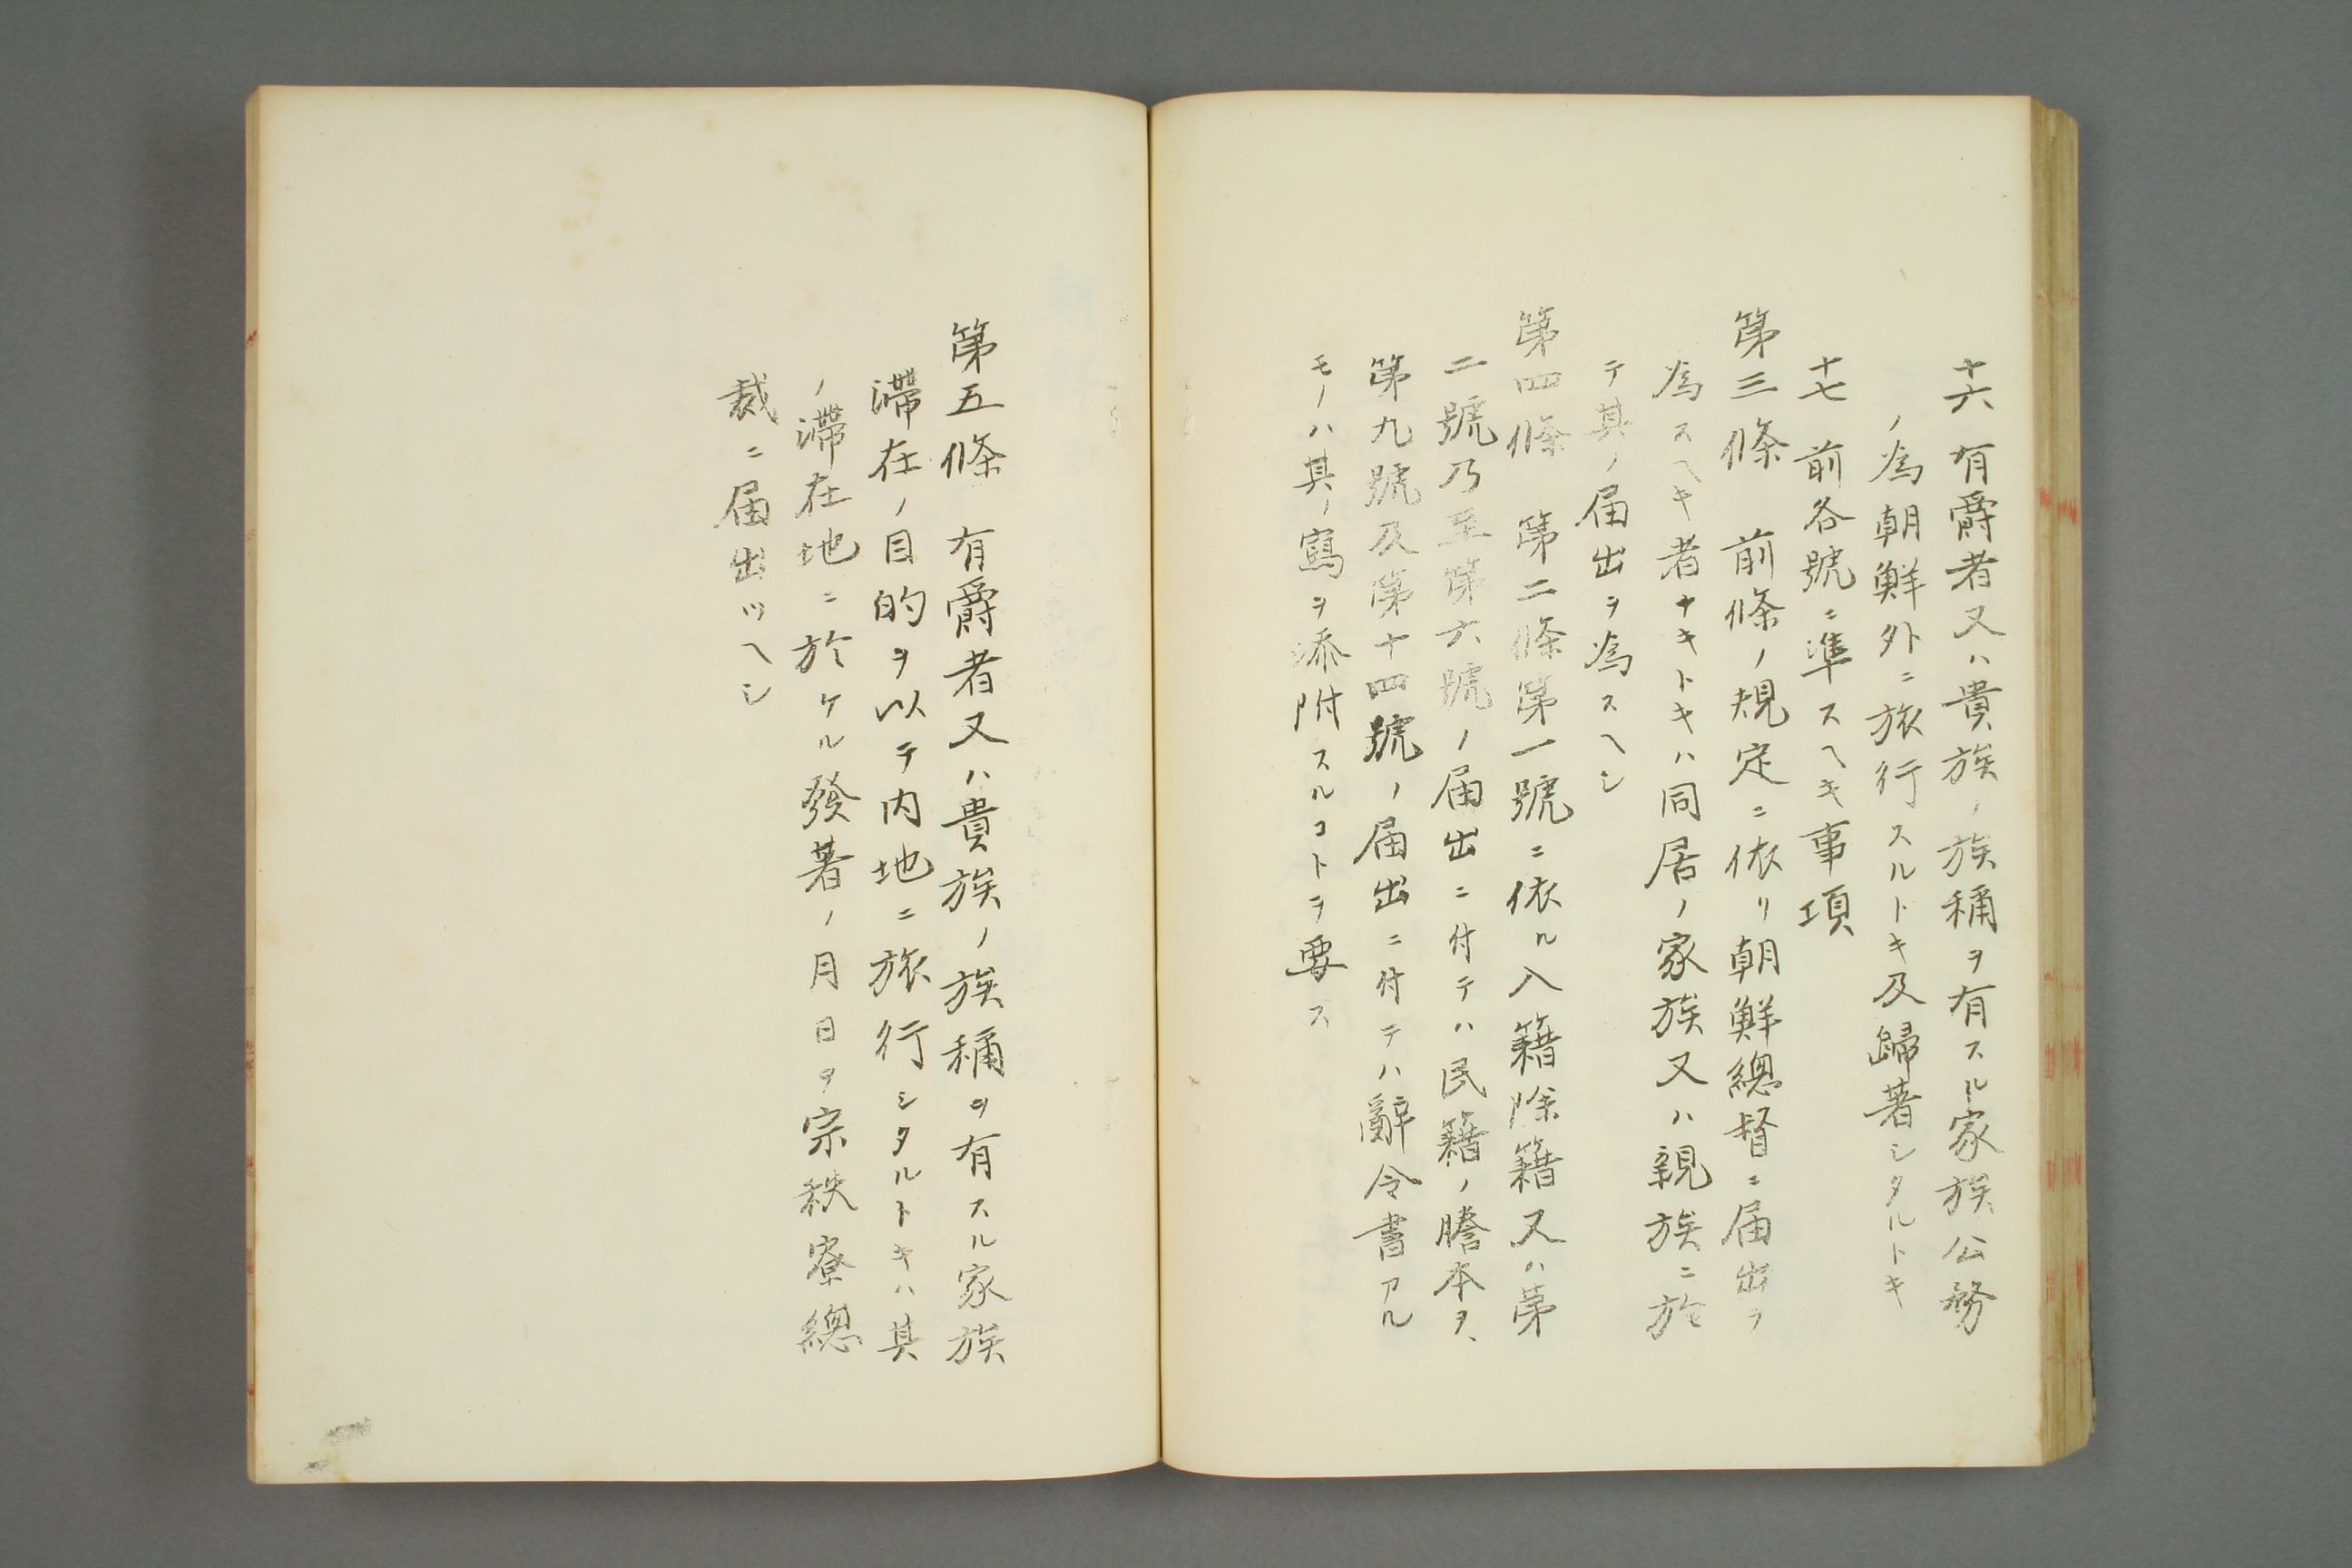 十六 有爵者又ハ貴族ノ族稱ヲ有スル家族公務
ノ爲朝鮮外ニ旅行スルトキ及歸著シタルトキ
十七 前各號ニ準スヘキ事項
第三條 前條ノ規定ニ依リ朝鮮總督ニ届出ヲ
爲スヘキ者ナキトキハ同居ノ家族又ハ親族ニ於
テ其ノ届出ヲ爲スヘシ
第四條 第二條第一號ニ依ル入籍除籍又ハ第
二號乃至第六號ノ届出ニ付テハ民籍ノ謄本ヲ、
第九號及第十四號ノ届出ニ付テハ辭令書アル
モノハ其ノ寫ヲ添附スルコトヲ要ス
第五條 有爵者又ハ貴族ノ族稱ヲ有スル家族
滯在ノ目的ヲ以テ内地ニ旅行シタルトキハ其
ノ滯在地ニ於ケル發著ノ月日ヲ宗秩寮總
裁ニ届出ツヘシ